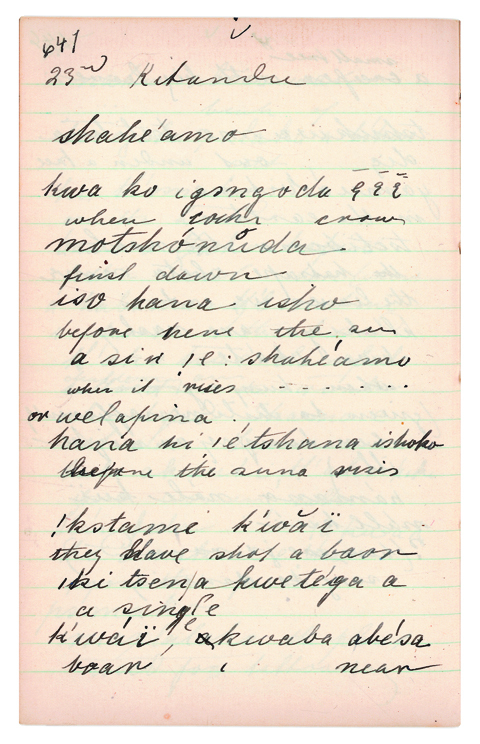 641
23rd Kitandu
shahé'amo
kwa ko igsngoda
when cocks crow
motshónŭda
first dawn
iso hana isho
before here the sun
a sin !e: shahé'amo
when it rises - - - . . .
or welapina .
hana ni !étshana ishoko
before the suna risis
!kstame k'wăï
they have shot a boar
!ki tsen/a kwetéga a
a single
k'wáï, kwaba abésa
boar , near